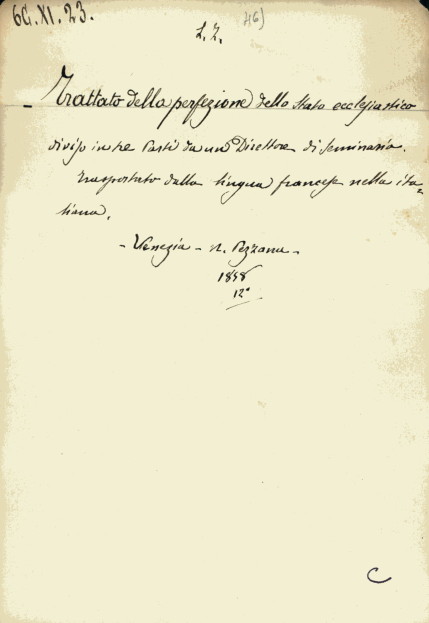 6G.XI.23.
46)
L. Z.
- Trattato della perfezione dello Stato ecclesiastico
diviso in tre Parti da un Direttore di seminario.
Trasportato dalla lingua francese nella ita=
liana.
- Venezia - n. Pezzana -
12°
C